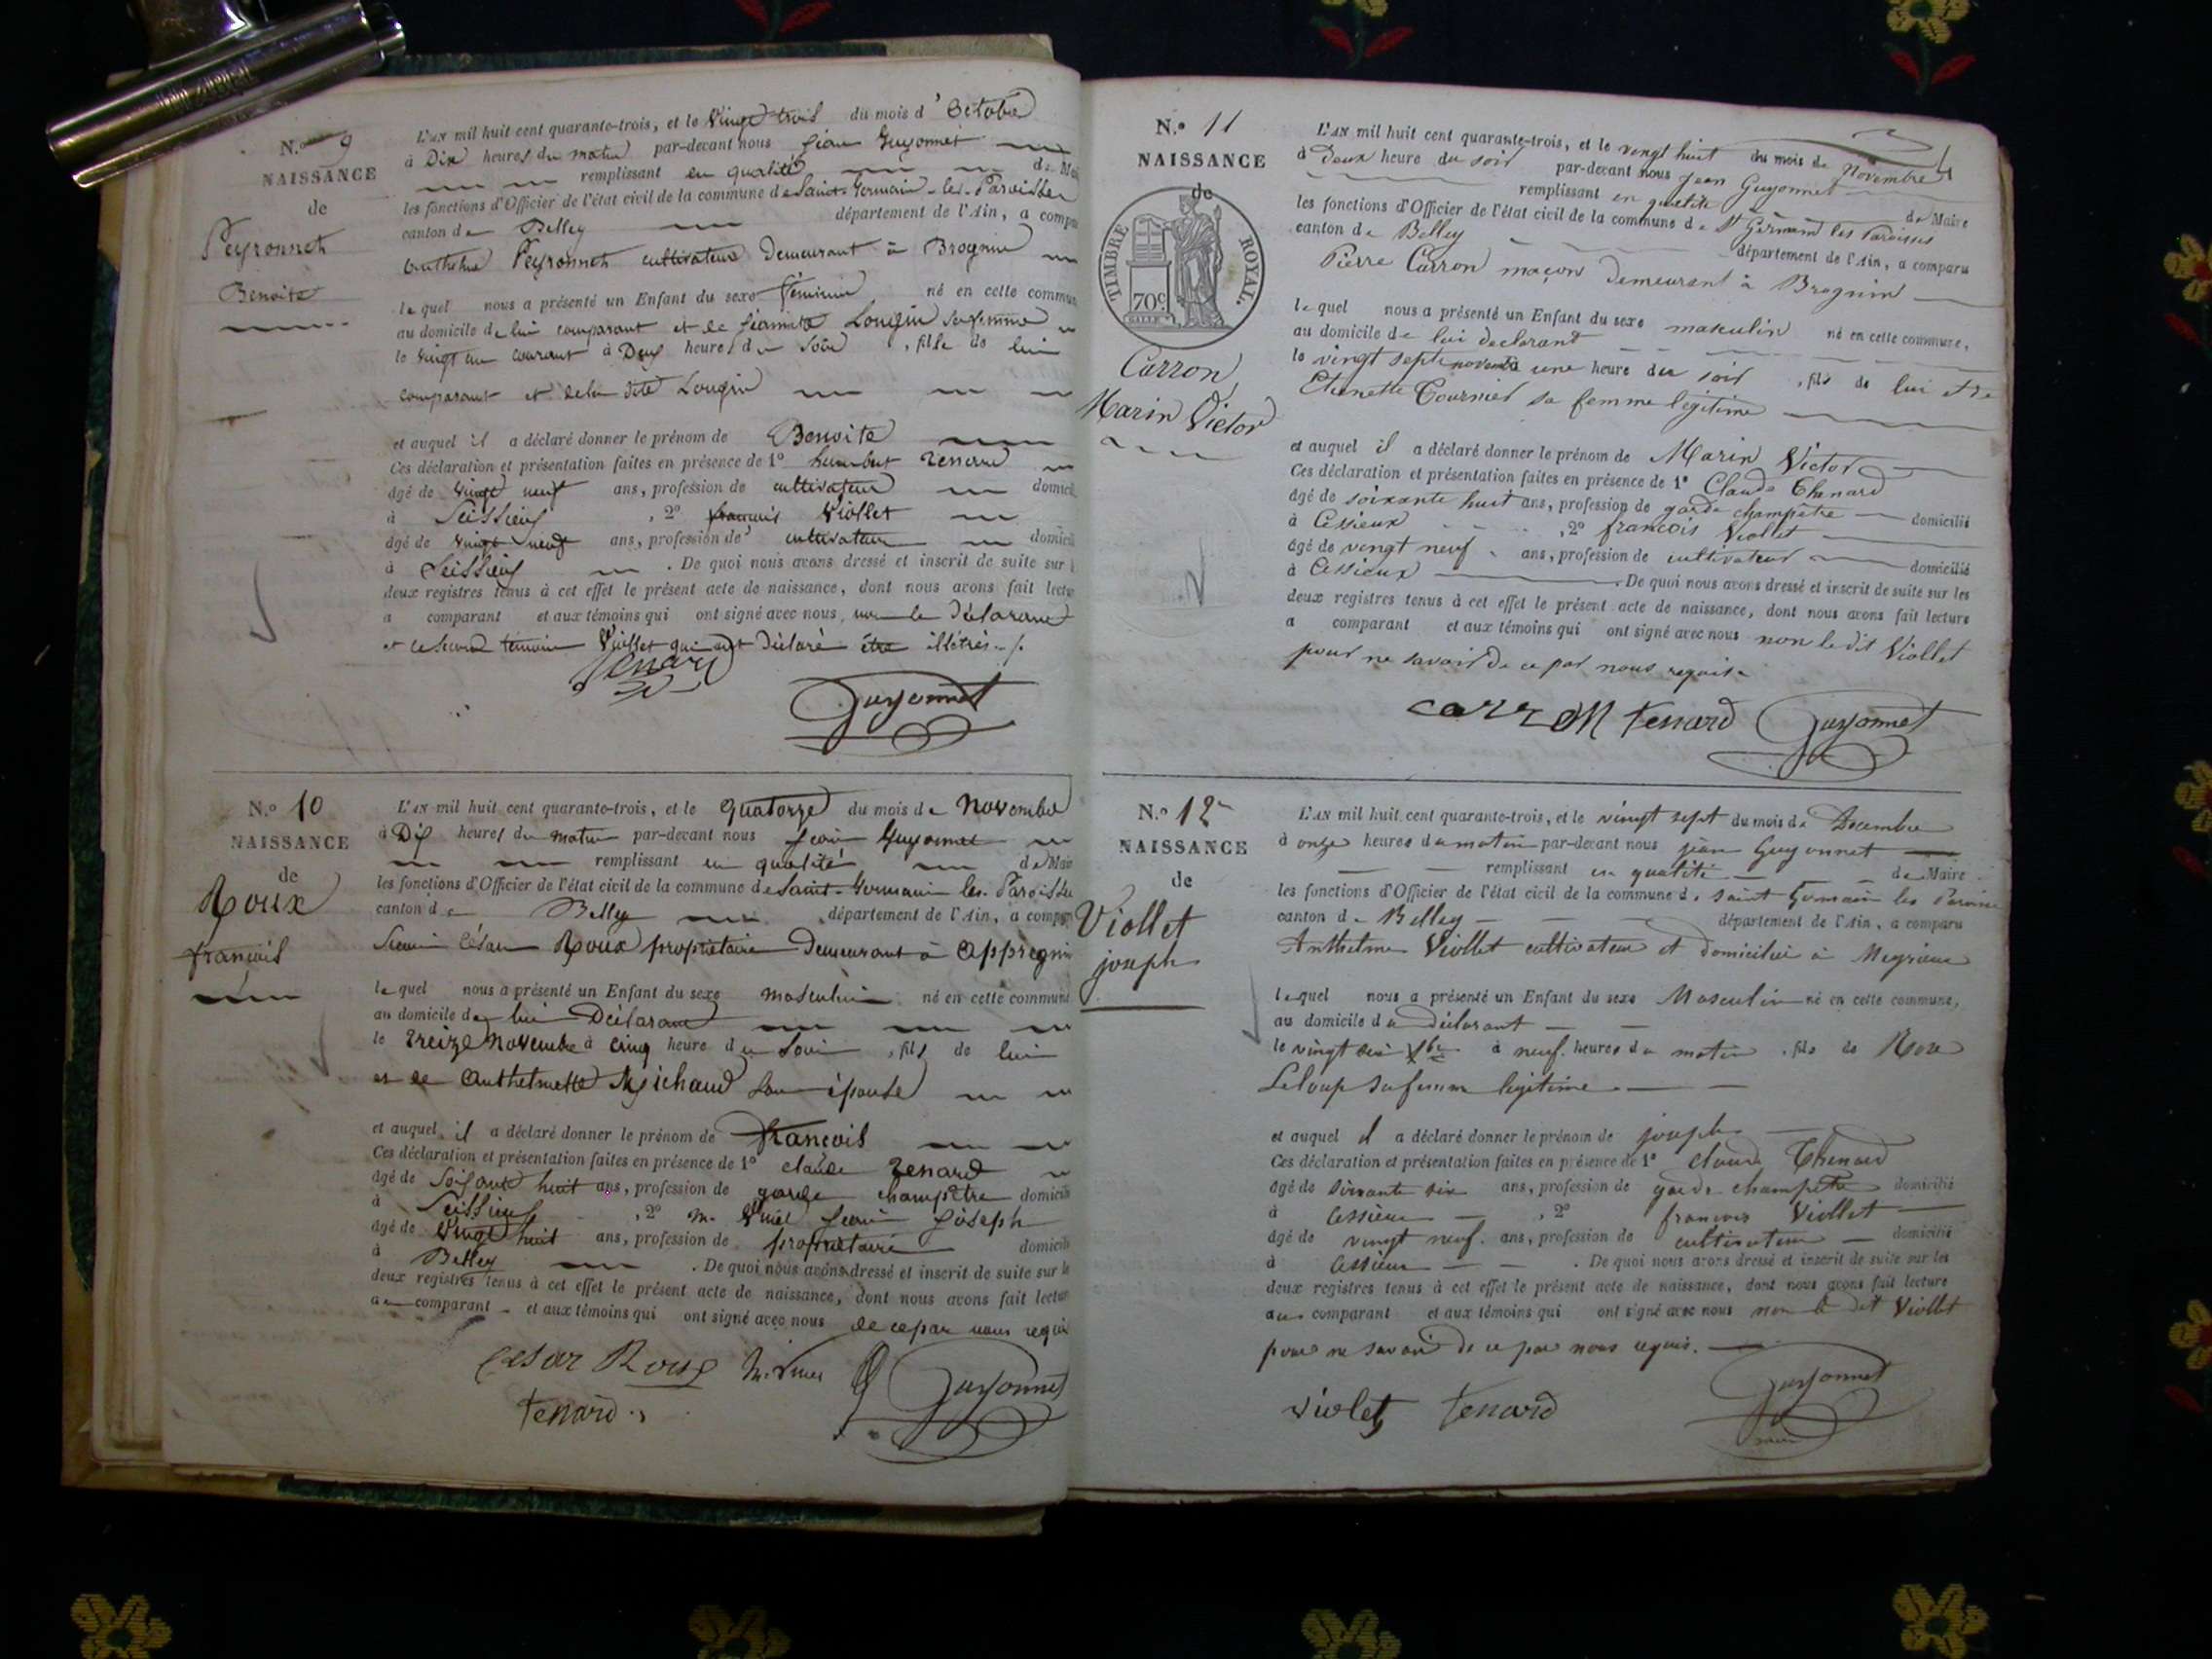 N.º 9
NAISSANCE
de
Peyronnet
Benoite
L'AN mil huit cent quarante-trois, et le vingt trois du mois d'Octobre
à Dix heures du matin par-devant nous jean Guyonnet
remplissant en qualité de Mai
les fonctions d'Officier de l'état civil de la commune de Saint-Germain-les-Paroisses
canton de Belley département de l'Ain, a compa
Anthelme Peyronnet cultivateur Demeurant à Brognin
lequel nous a présenté un Enfant du sexe féminin né en cette commun
au domicile de lui comparant et de jeannite Longin sa femme
le vingt un courant à Deux heures du Soir, fille de lui
comparant et de la dite Longin
et auquel il a déclaré donner le prénom de Benoite
Ces déclaration et présentation faites en présence de 1º humbert Tenard
âgé de vingt neuf ans, profession de cultivateur domicil
à Seissieux, 2º françois Viollet
âgé de vingt neuf ans, profession de cultivateur domicil
à Seissieux. De quoi nous avons dressé et inscrit de suite sur l
deux registres tenus à cet effet le présent acte de naissance, dont nous avons fait lectu
a comparant et aux témoins qui ont signé avec nous, non le Déclarant
et le second témoin Viollet qui ont Déclaré être illétrés./.
Tenard
Guyonnet
N.º 10
NAISSANCE
de
Roux
françois
L'AN mil huit cent quarante-trois, et le quatorze du mois de Novembre
à Dix heures du matin par-devant nous jean Guyonnet
remplissant en qualité de Mair
les fonctions d'Officier de l'état civil de la commune de Saint-Germain-les-Paroisses
canton de Belley département de l'Ain, a compar
César Roux propriétaire Demeurant à Appregnin
lequel nous a présenté un Enfant du sexe masculin né en cette commune
au domicile de lui Déclarant
le treize Novembre à cinq heure du Soir, fils de lui
et de Anthelmette Michaud Son épouse
et auquel il a déclaré donner le prénom de françois
Ces déclaration et présentation faites en présence de 1º claude Tenard
âgé de Soixante huit ans, profession de garde champêtre domicili
à Seissieux, 2º M. jean joseph
âgé de vingt huit ans, profession de propriétaire domicili
à Belley. De quoi nous avons dressé et inscrit de suite sur le
deux registres tenus à cet effet le présent acte de naissance, dont nous avons fait lectur
au comparant et aux témoins qui ont signé avec nous de ce par nous requis
Cesar Roux
Guyonnet
Tenard
N.º 11
NAISSANCE
de
TIMBRE ROYAL.
70c
Carron
Marin Victor
L'AN mil huit cent quarante-trois, et le vingt huit du mois de Novembre
à Deux heure du soir par-devant nous Jean Guyonnet
remplissant en qualité de Maire
les fonctions d'Officier de l'état civil de la commune de St Germain les Paroisses
canton de Belley département de l'Ain, a comparu
Pierre Carron maçon Demeurant à Brognin
lequel nous a présenté un Enfant du sexe masculin né en cette commune,
au domicile de lui déclarant
le vingt sept novembre une heure du soir, fils de lui et de
Etienette Tournier sa femme légitime
et auquel il a déclaré donner le prénom de Marin Victor
Ces déclaration et présentation faites en présence de 1º Claude Thenard
âgé de soixante huit ans, profession de garde champêtre domicilié
à Cessieux, 2º françois Viollet
âgé de vingt neuf ans, profession de cultivateur domicilié
à Cessieux. De quoi nous avons dressé et inscrit de suite sur les
deux registres tenus à cet effet le présent acte de naissance, dont nous avons fait lecture
a comparant et aux témoins qui ont signé avec nous non le dit Viollet
pour ne savoir De ce par nous requis.
carron Tenard Guyonnet
N.º 12
NAISSANCE
de
Viollet
joseph
L'AN mil huit cent quarante-trois, et le vingt sept du mois de Decembre
à onze heures du matin par-devant nous jean Guyonnet
remplissant en qualité de Maire
les fonctions d'Officier de l'état civil de la commune de saint Germain les Paroisses
canton de Belley département de l'Ain, a comparu
Anthelme Viollet cultivateur et domicilié à Meyrieux
lequel nous a présenté un Enfant du sexe Masculin né en cette commune,
au domicile du déclarant
le vingt six Xbre à neuf heures du matin, fils de Rose
Leloup sa femme légitime
et auquel il a déclaré donner le prénom de joseph
Ces déclaration et présentation faites en présence de 1º claude Thenard
âgé de soixante six ans, profession de garde champêtre domicilié
à Cessieux, 2º françois Viollet
âgé de vingt neuf ans, profession de cultivateur domicilié
à Cessieux. De quoi nous avons dressé et inscrit de suite sur les
deux registres tenus à cet effet le présent acte de naissance, dont nous avons fait lecture
au comparant et aux témoins qui ont signé avec nous non le dit Viollet
pour ne savoir de ce par nous requis.
violet Tenard Guyonnet